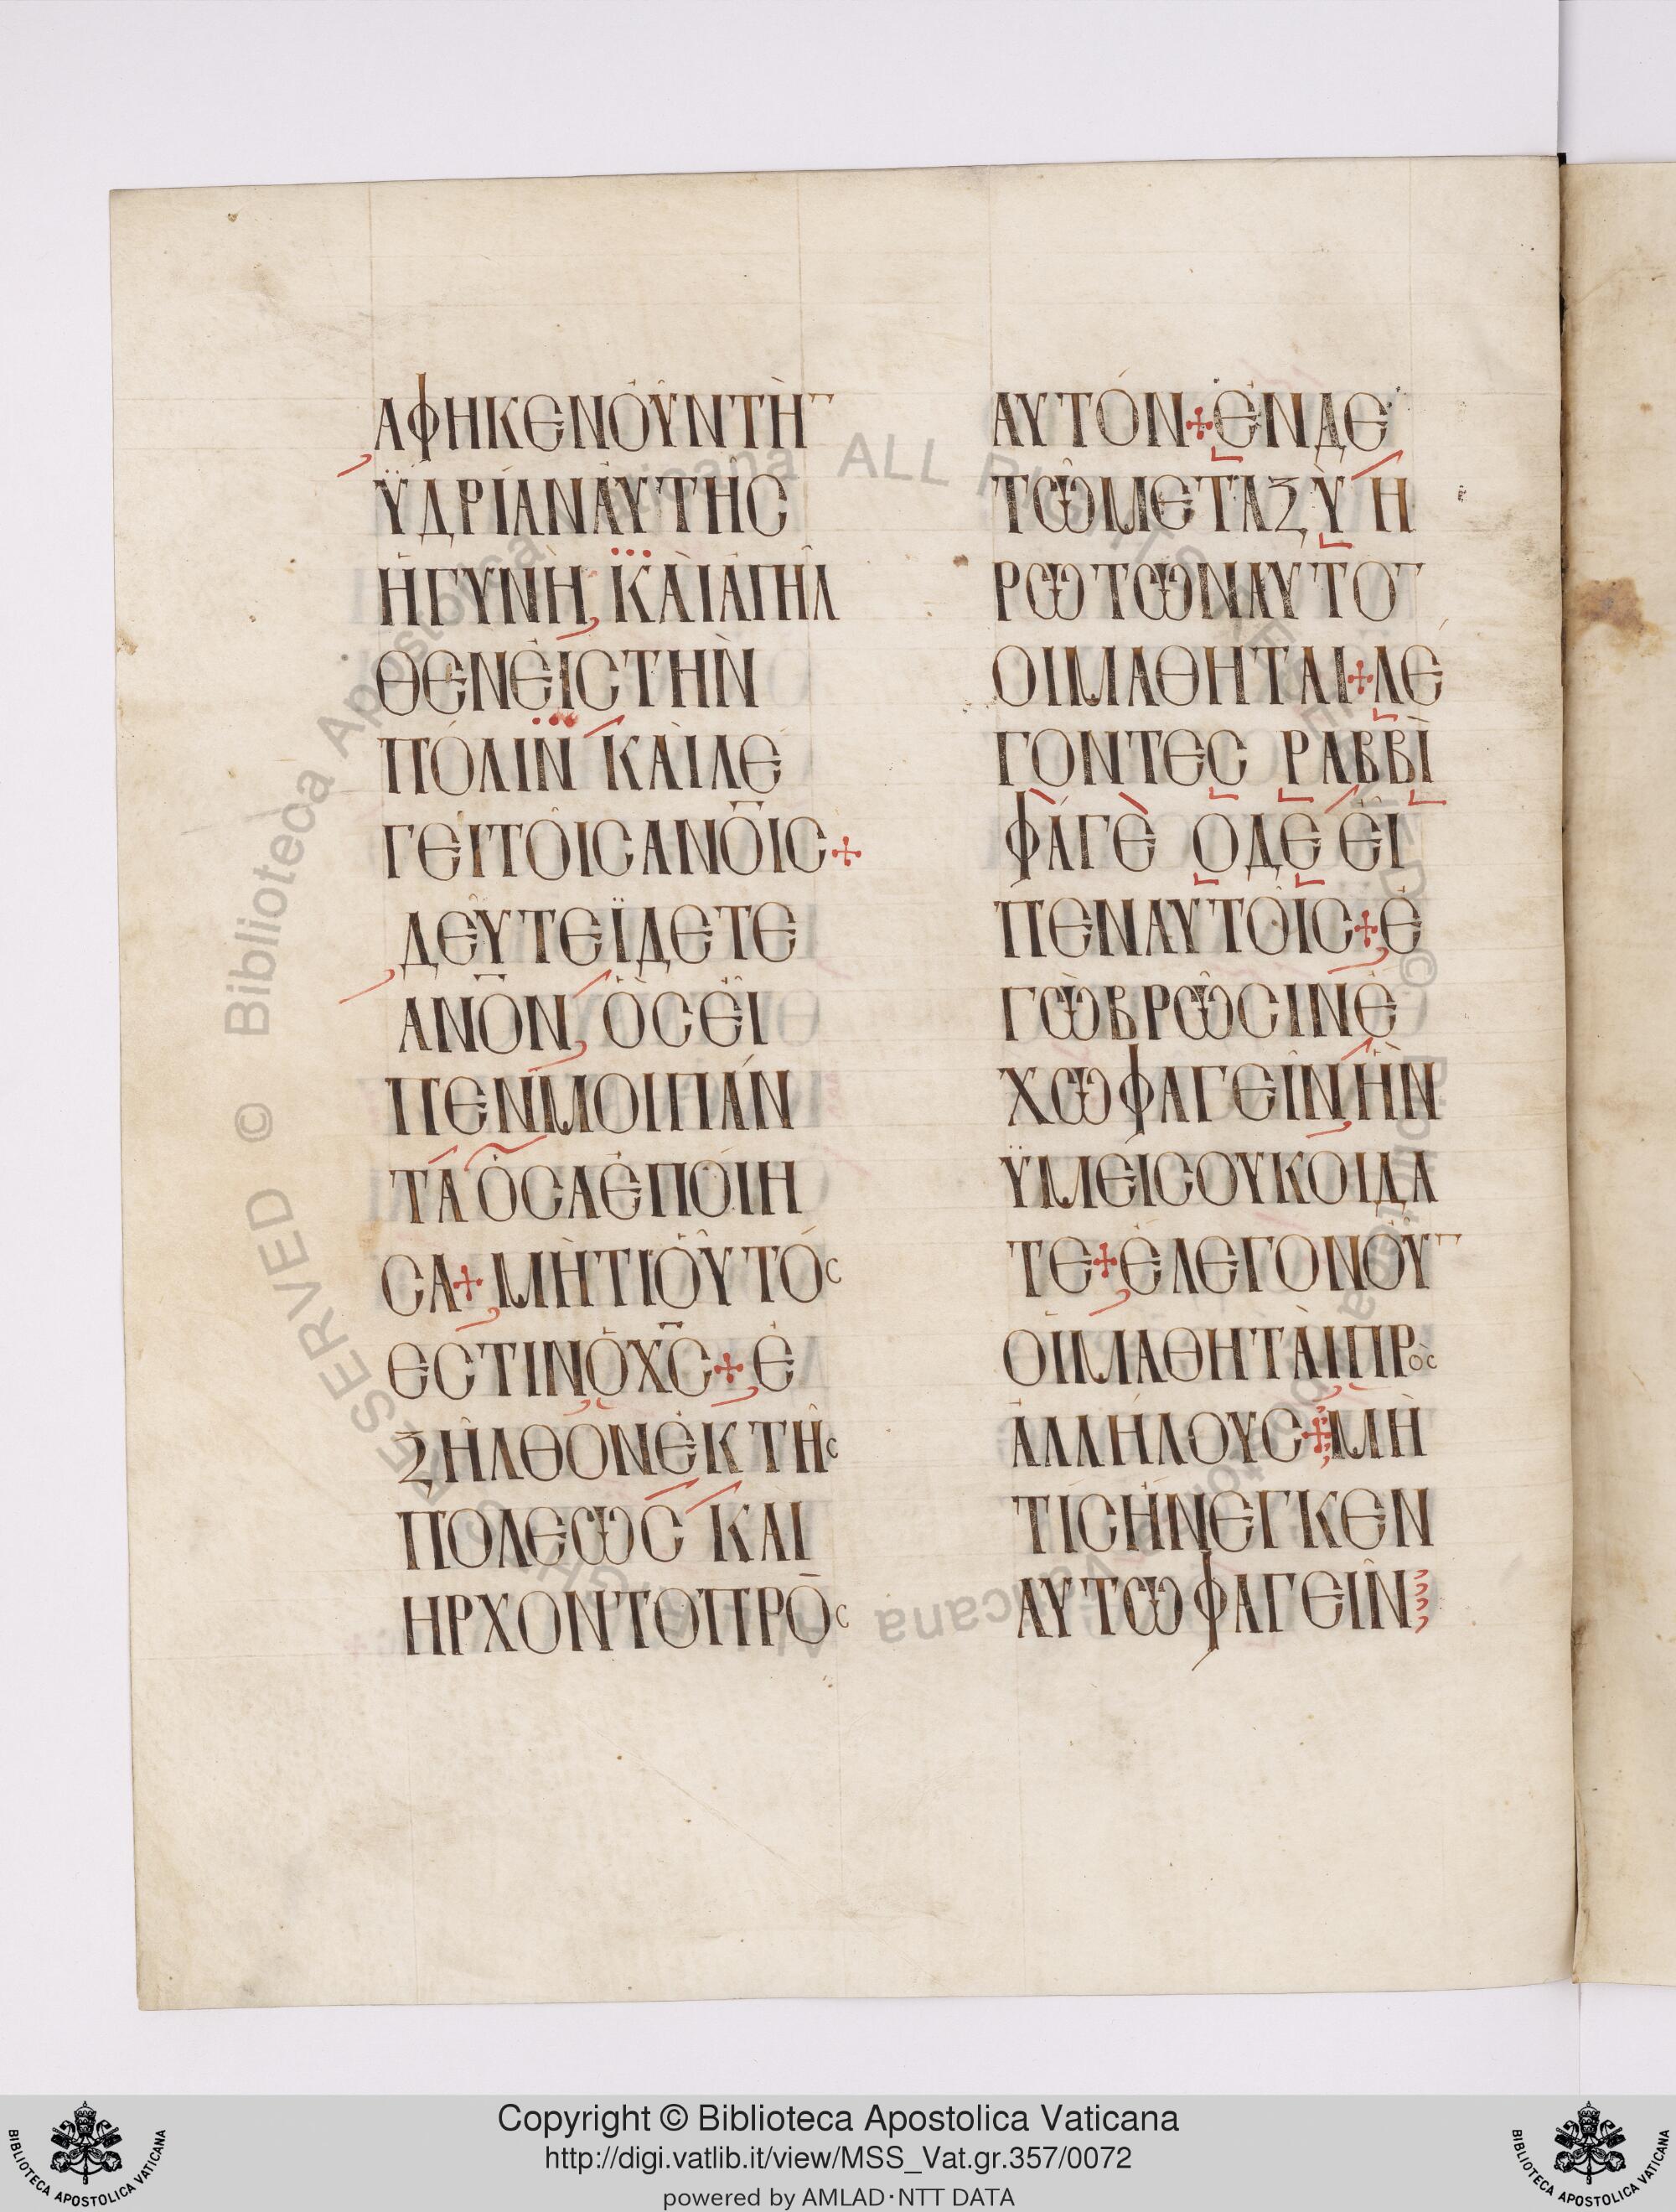 ΑΦΗΚΕΝΟΥΝΤΗ‾
ΫΔΡΙΑΝΑΥΤΗϹ
ΗΓΥΝΗ, ΚΑΙΑΠΗΛ
ΘΕΝΕΙϹΤΗΝ
ΠΟΛΙΝ ΚΑΙΛΕ
ΓΕΙΤΟΙϹΑΝΟ̅ΙϹ+
ΔΕΥΤΕΪΔΕΤΕ
ΑΝΟ̅Ν, ΟϹΕΙ
ΠΕΝΜΟΙΠΑΝ
ΤΑ ΟϹΑΕΠΟΙΗ
ϹΑ+ΜΗΤΙΟΥΤΟϹ
ΕϹΤΙΝΟΧ̅Ϲ+Ε
ΞΗΛΘΟΝΕΚΤΗϹ
ΠΟΛΕΩϹ ΚΑΙ
ΗΡΧΟΝΤΟΠΡΟϹ
ΑΥΤΟΝ+ΕΝΔΕ
ΤΩΜΕΤΑΞΥ Η
ΡΩΤΩΝΑΥΤΟ‾
ΟΙΜΑΘΗΤΑΙ+ΛΕ
ΓΟΝΤΕϹ ΡΑΒΒΙ
ΦΑΓΕ ΟΔΕ ΕΙ
ΠΕΝΑΥΤΟΙϹ+Ε
ΓΩΒΡΩϹΙΝΕ
ΧΩΦΑΓΕΙΝΗΝ
ΫΜΕΙϹΟΥΚΟΙΔΑ
ΤΕ+ΕΛΕΓΟΝΟΥ‾
ΟΙΜΑΘΗΤΑΙΠΡΟϹ
ΑΛΛΗΛΟΥϹ+ΜΗ
ΤΙϹΗΝΕΓΚΕΝ
ΑΥΤΩΦΑΓΕΙΝ
© Biblioteca Apostolica Vaticana ALL RIGHTS RESERVED
Copyright © Biblioteca Apostolica Vaticana
http://digi.vatlib.it/view/MSS_Vat.gr.357/0072
powered by AMLAD·NTT DATA
BIBLIOTECA APOSTOLICA VATICANA
BIBLIOTECA APOSTOLICA VATICANA